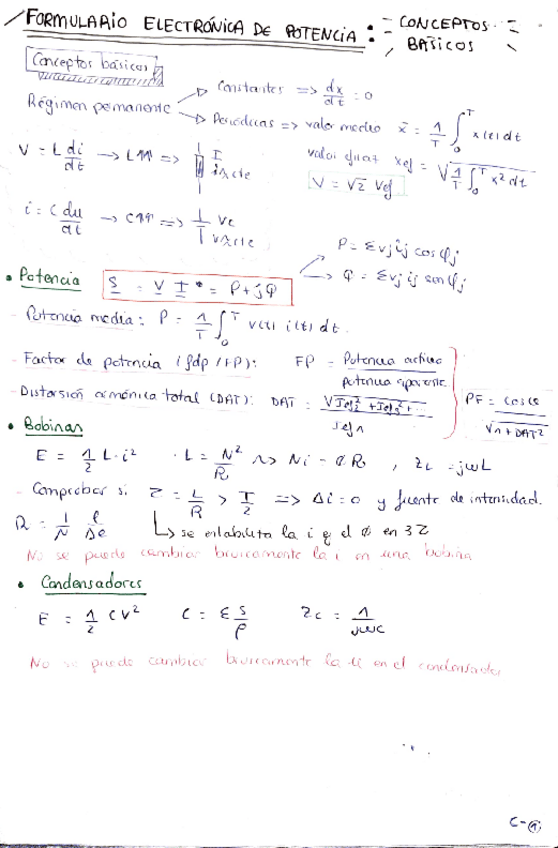 FORMULARIO ELECTRÓNICA DE POTENCIA: - CONCEPTOS BÁSICOS -
Conceptos básicos
Régimen permanente → Constantes => dx/dt = 0
→ Periódicas => valor medio x̄ = 1/T ∫₀ᵀ x(t) dt
valor eficaz xef = √(1/T ∫₀ᵀ x² dt)
V = √2 Vef
V = L di/dt → L↑↑ => I i≈cte
i = C du/dt → C↑↑ => Vc v≈cte
• Potencia S = V I* = P + jQ
→ P = Σ vj ij cos φj
→ Q = Σ vj ij sen φj
- Potencia media: P = 1/T ∫₀ᵀ v(t) i(t) dt.
- Factor de potencia (fdp / FP): FP = Potencia activa / potencia aparente
- Distorsión armónica total (DAT): DAT = √(Ief2² + Ief3² + ...) / Ief1
PF = cos φ / √(1 + DAT²)
• Bobinas
E = 1/2 L · i² · L = N²/R ⇝ Ni = Φ R, ZL = jωL
- Comprobar si Z = L/R > T/2 => Δi = 0 y fuente de intensidad.
R = 1/N l/Se ↳ se estabiliza la i y el Φ en 3 Z
No se puede cambiar bruscamente la i en una bobina
• Condensadores
E = 1/2 C V² C = ε S/ρ Zc = 1/jωC
No se puede cambiar bruscamente la u en el condensador
C-①